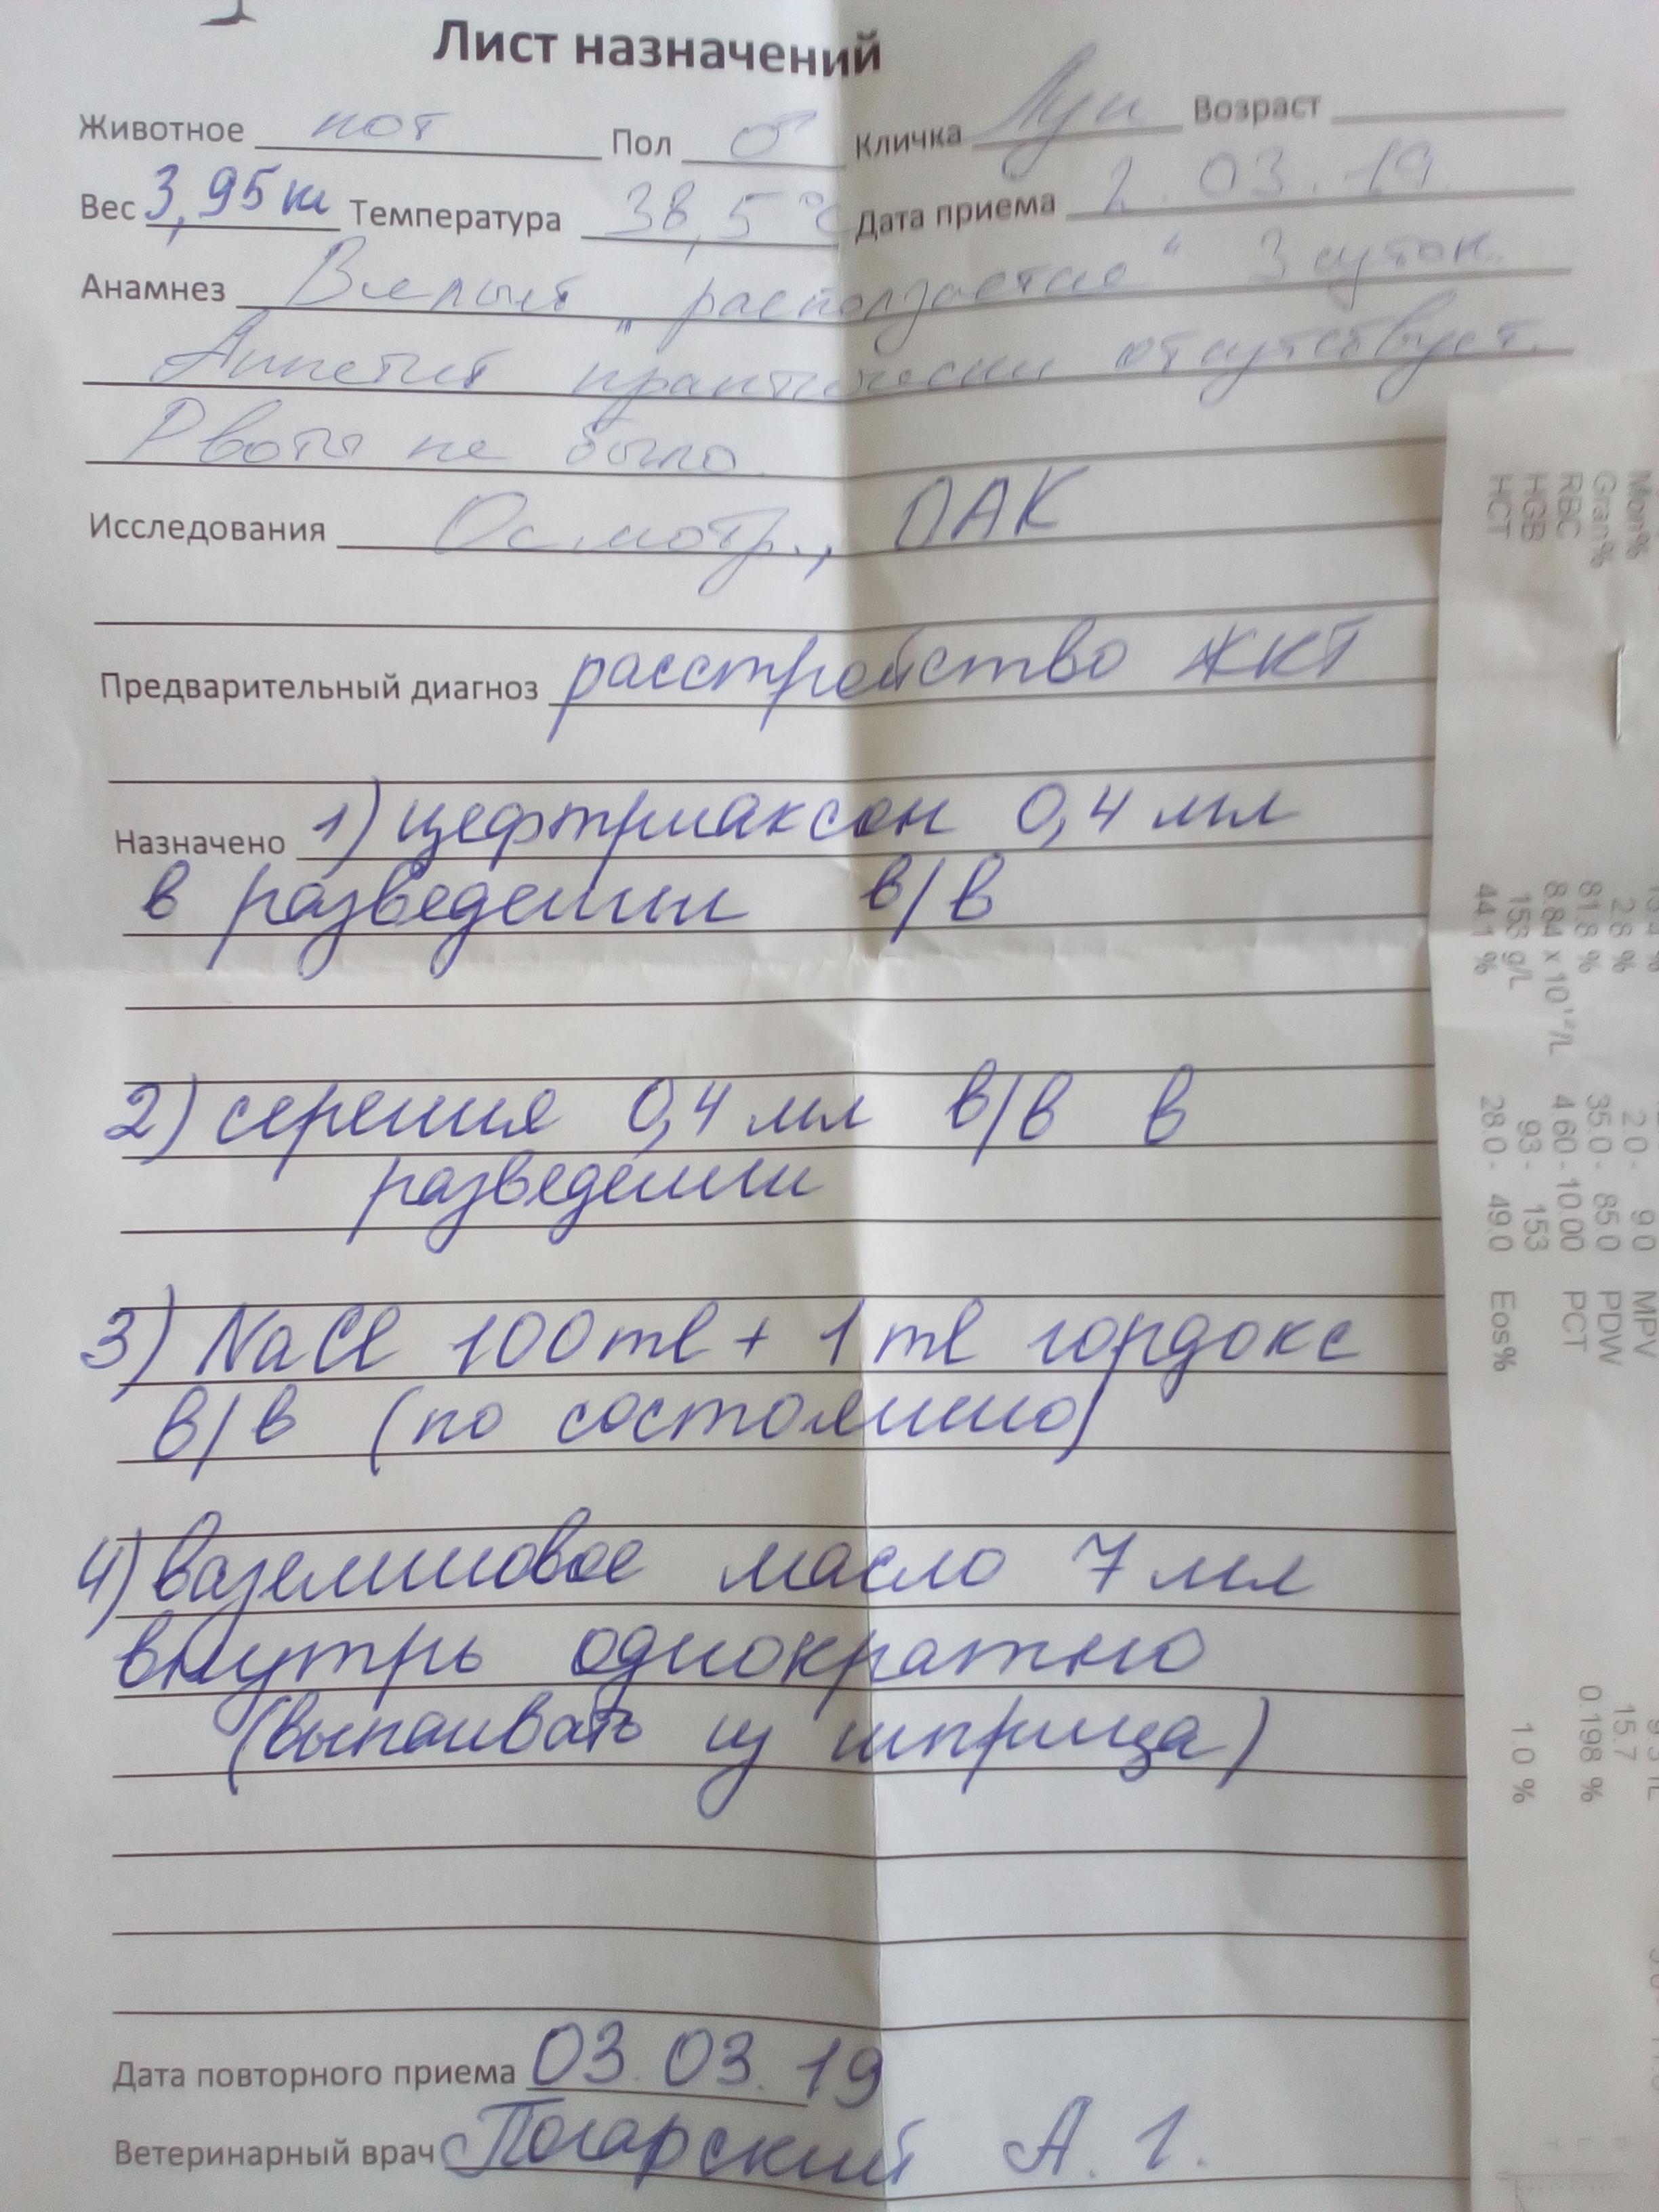 Лист назначений
Животное кот Пол ♂ Кличка Луи Возраст
Вес 3,95 кг Температура 38,5 °C Дата приема 2.03.19
Анамнез Вялый "расползается" 3 суток.
Аппетит практически отсутствует.
Рвоты не было.
Исследования Осмотр., ОАК
Предварительный диагноз расстройство ЖКТ
Назначено 1) цефтриаксон 0,4 мл
в разведении в/в
2) серения 0,4 мл в/в в
разведении
3) NaCl 100 ml + 1 ml гордокс
в/в (по состоянию)
4) вазелиновое масло 7 мл
внутрь однократно
(выпаивать из шприца)
Дата повторного приема 03.03.19
Ветеринарный врач Погарский А. Г.
Mon% 2.8 % 2.0 - 9.0 MPV
Gran% 81.8 % 35.0 - 85.0 PDW 15.7
RBC 8.84 x 10¹²/L 4.60 - 10.00 PCT 0.198 %
HGB 153 g/L 93 - 153
HCT 44.1 % 28.0 - 49.0 Eos% 1.0 %